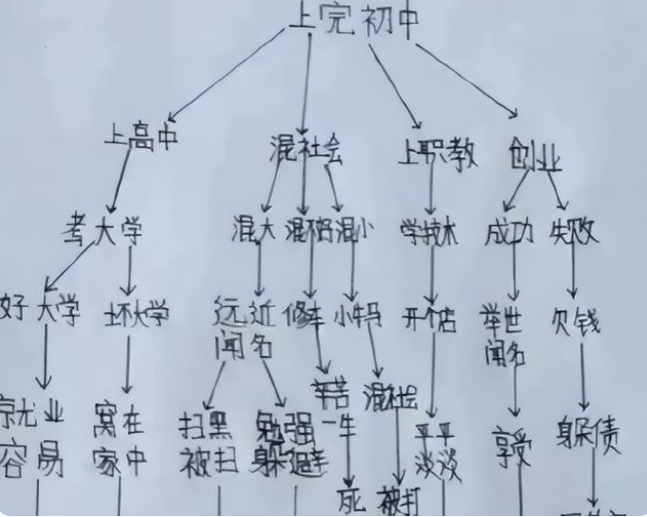 上完初中
上高中 混社会 上职教 创业
考大学 混大 混不好 混小 学技术 成功 失败
好大学 坏大学 远近 修车 小牛马 开个店 举世 欠钱
闻名 闻名
就业 窝在 扫黑 勉强 辛苦 混社会 平平 享受 躲债
容易 家中 被扫 躲避 一生 淡淡
死 被打